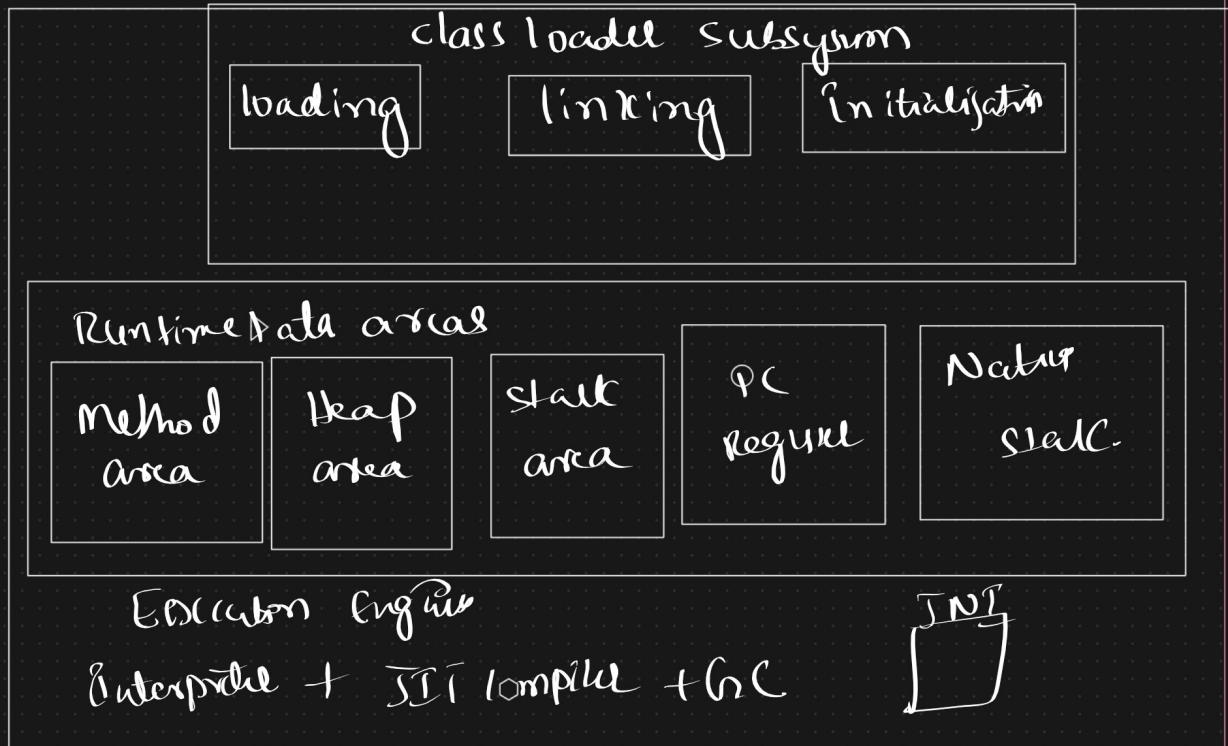 class loader subsystem
loading
linking
initialisation
Runtime Data areas
Method
area
Heap
area
stack
area
PC
Register
Native
stack.
Execution Engine
JNI
interpreter + JIT compiler + GC